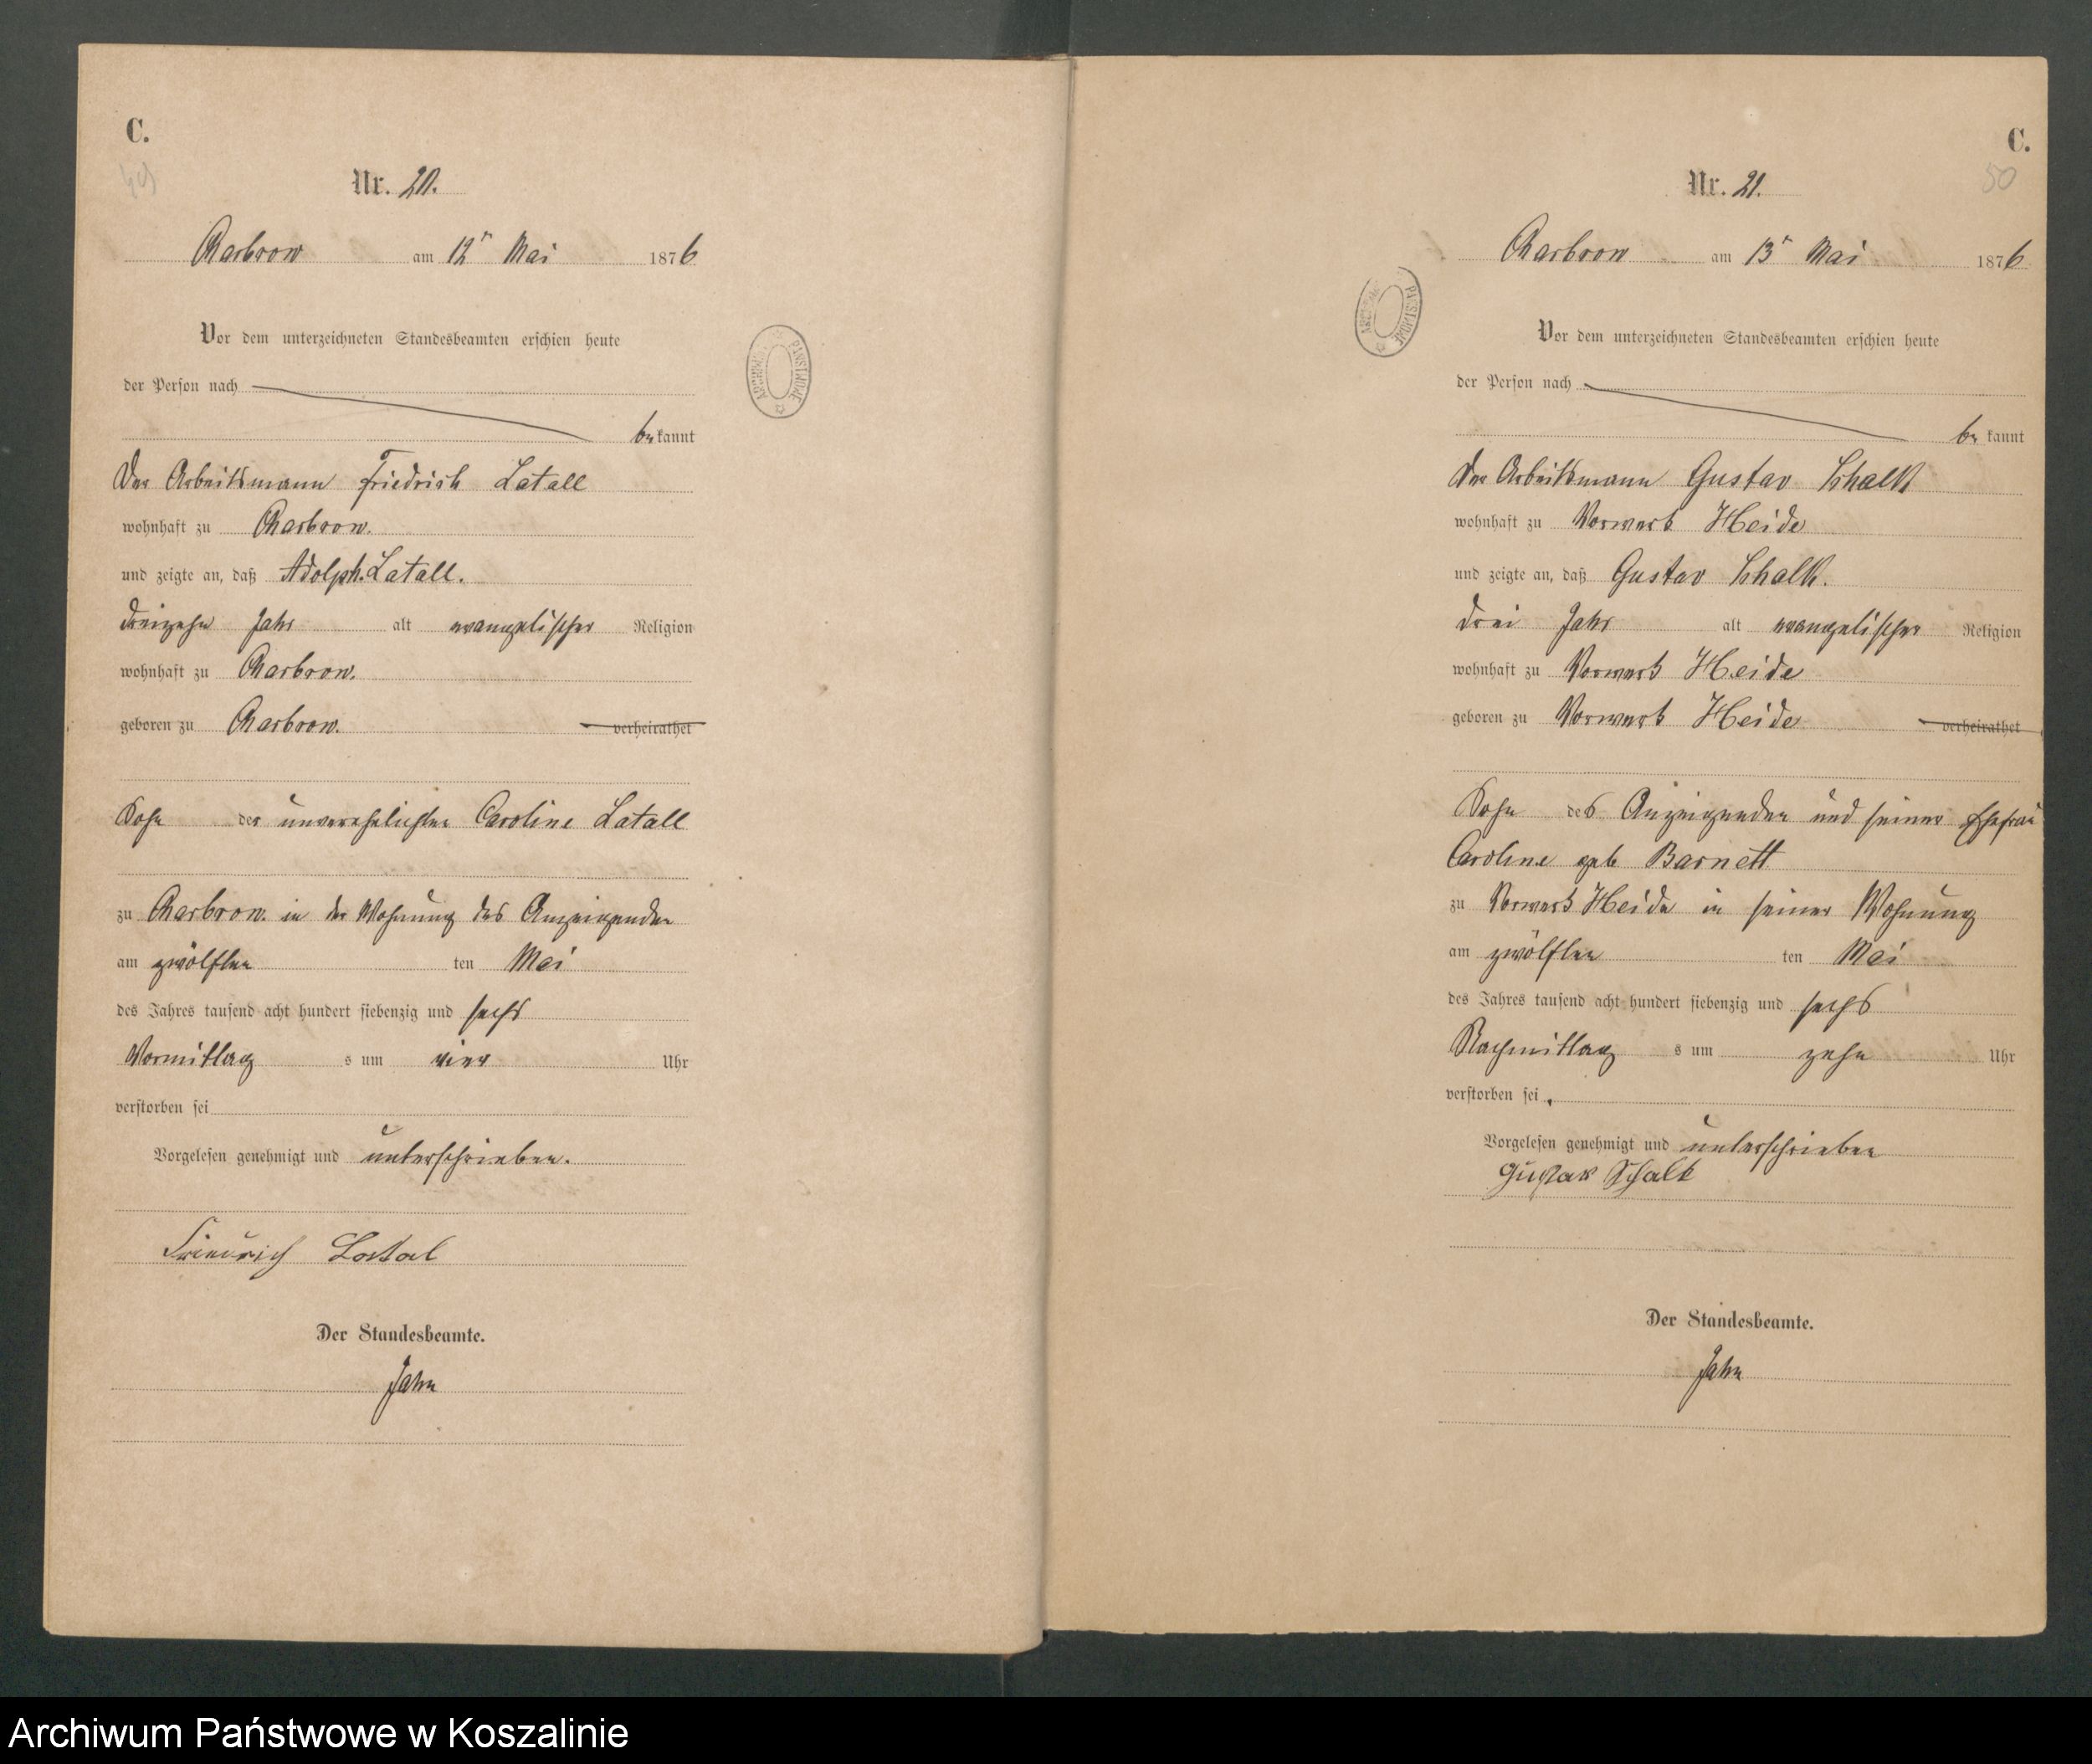 C.
49
Nr. 20.
Charbrow am 12ᵗ Mai 1876
Vor dem unterzeichneten Standesbeamten erschien heute
der Person nach
bekannt
Der Arbeitsmann Friedrich Latall
wohnhaft zu Charbrow.
und zeigte an, daß Adolph Latall.
dreizehn Jahr alt evangelischer Religion
wohnhaft zu Charbrow.
geboren zu Charbrow. verheirathet
Sohn der unverehelichten Caroline Latall
zu Charbrow. in der Wohnung des Anzeigenden
am zwölften ten Mai
des Jahres tausend acht hundert siebenzig und sechs
Vormittag s um vier Uhr
verstorben sei
Vorgelesen genehmigt und unterschrieben.
Friedrich Lattal
Der Standesbeamte.
Jahn
ARCHIWUM PAŃSTWOWE
C.
50
Nr. 21.
Charbrow am 13ᵗ Mai 1876
Vor dem unterzeichneten Standesbeamten erschien heute
der Person nach
bekannt
Der Arbeitsmann Gustav Schalk
wohnhaft zu Vorwerk Heide
und zeigte an, daß Gustav Schalk.
drei Jahr alt evangelischer Religion
wohnhaft zu Vorwerk Heide
geboren zu Vorwerk Heide verheirathet
Sohn des Anzeigenden und seiner Ehefrau
Caroline geb Barnett
zu Vorwerk Heide in seiner Wohnung
am zwölften ten Mai
des Jahres tausend acht hundert siebenzig und sechs
Nachmittag s um zehn Uhr
verstorben sei.
Vorgelesen genehmigt und unterschrieben
Gustav Schalk
Der Standesbeamte.
Jahn
ARCHIWUM PAŃSTWOWE
Archiwum Państwowe w Koszalinie